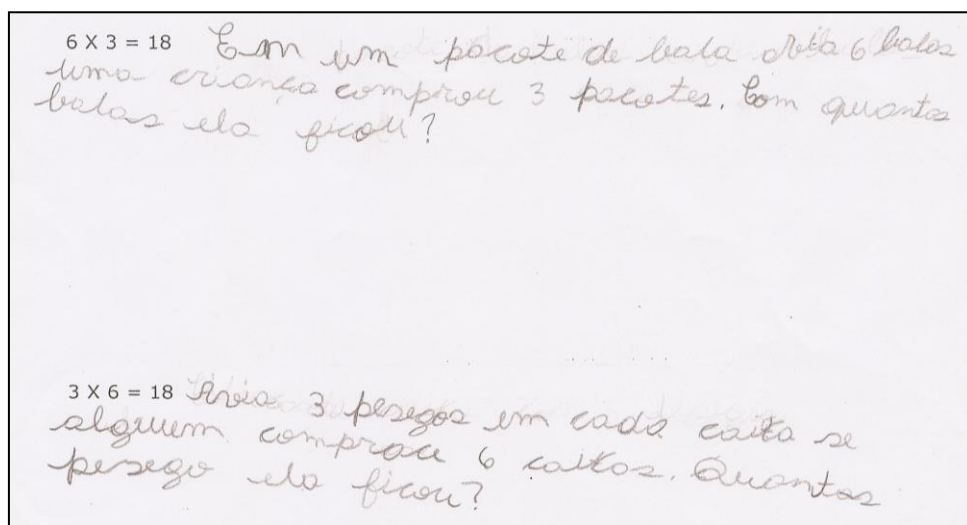 6 X 3 = 18 Em um pacote de bala avia 6 balas
uma criança comprou 3 pacotes. Com quantas
balas ela ficou?
3 X 6 = 18 Avia 3 pesegos em cada caixa se
alguem comprou 6 caixas. Quantos
pesego ela ficou?